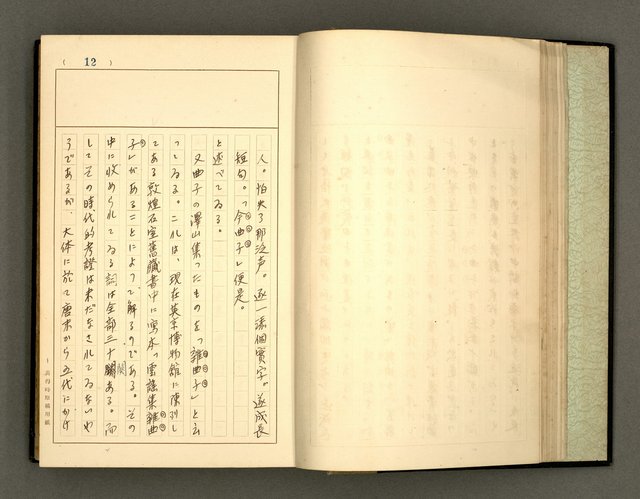 ( 12 )
人。怕失了那泛声。逐一添個實字。遂成長
短句。「今曲子」便是。
と述べてゐる。
又曲子の澤山集ったものを「雜曲子」と云
ってゐる。これは、現在英京博物館に陳列し
てある敦煌石室舊藏書中に寫本の雲謠集雜曲
子」があることによって解るのである。その
中に收められてゐる詞は全部三十闋ある。而
してその時代的考證は未だなされてゐないや
うであるが、大体に於て唐末から五代にかけ